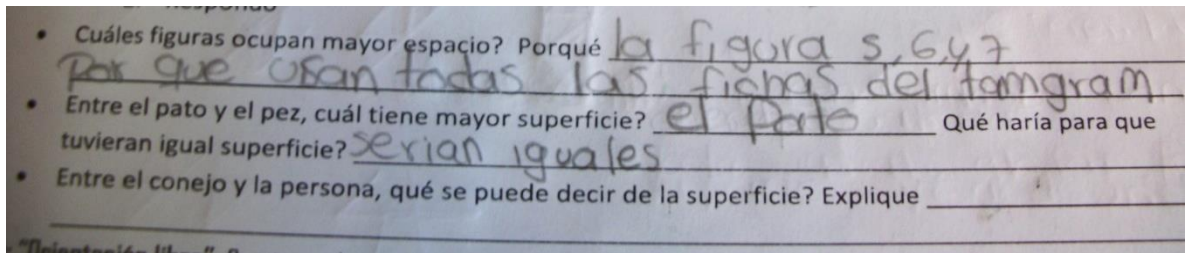 Cuáles figuras ocupan mayor espacio? Porqué la figura 5,6,y 7
Por que usan todas las fichas del tamgram
Entre el pato y el pez, cuál tiene mayor superficie? el Pato Qué haría para que
tuvieran igual superficie? serian iguales
Entre el conejo y la persona, qué se puede decir de la superficie? Explique